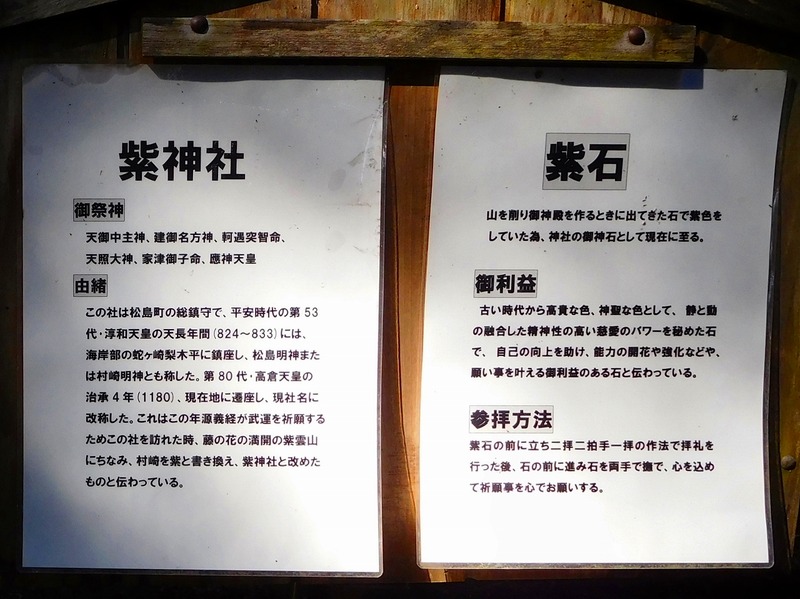 紫神社
御祭神
天御中主神、建御名方神、軻遇突智命、
天照大神、家津御子命、應神天皇
由緒
この社は松島町の総鎮守で、平安時代の第53
代・淳和天皇の天長年間(824～833)には、
海岸部の蛇ヶ崎梨木平に鎮座し、松島明神また
は村崎明神とも称した。第80代・高倉天皇の
治承4年(1180)、現在地に遷座し、現社名に
改称した。これはこの年源義経が武運を祈願する
ためこの社を訪れた時、藤の花の満開の紫雲山
にちなみ、村崎を紫と書き換え、紫神社と改めた
ものと伝わっている。
紫石
山を削り御神殿を作るときに出てきた石で紫色を
していた為、神社の御神石として現在に至る。
御利益
古い時代から高貴な色、神聖な色として、静と動
の融合した精神性の高い慈愛のパワーを秘めた石
で、自己の向上を助け、能力の開花や強化などや、
願い事を叶える御利益のある石と伝わっている。
参拝方法
紫石の前に立ち二拝二拍手一拝の作法で拝礼を
行った後、石の前に進み石を両手で撫で、心を込め
て祈願事を心でお願いする。